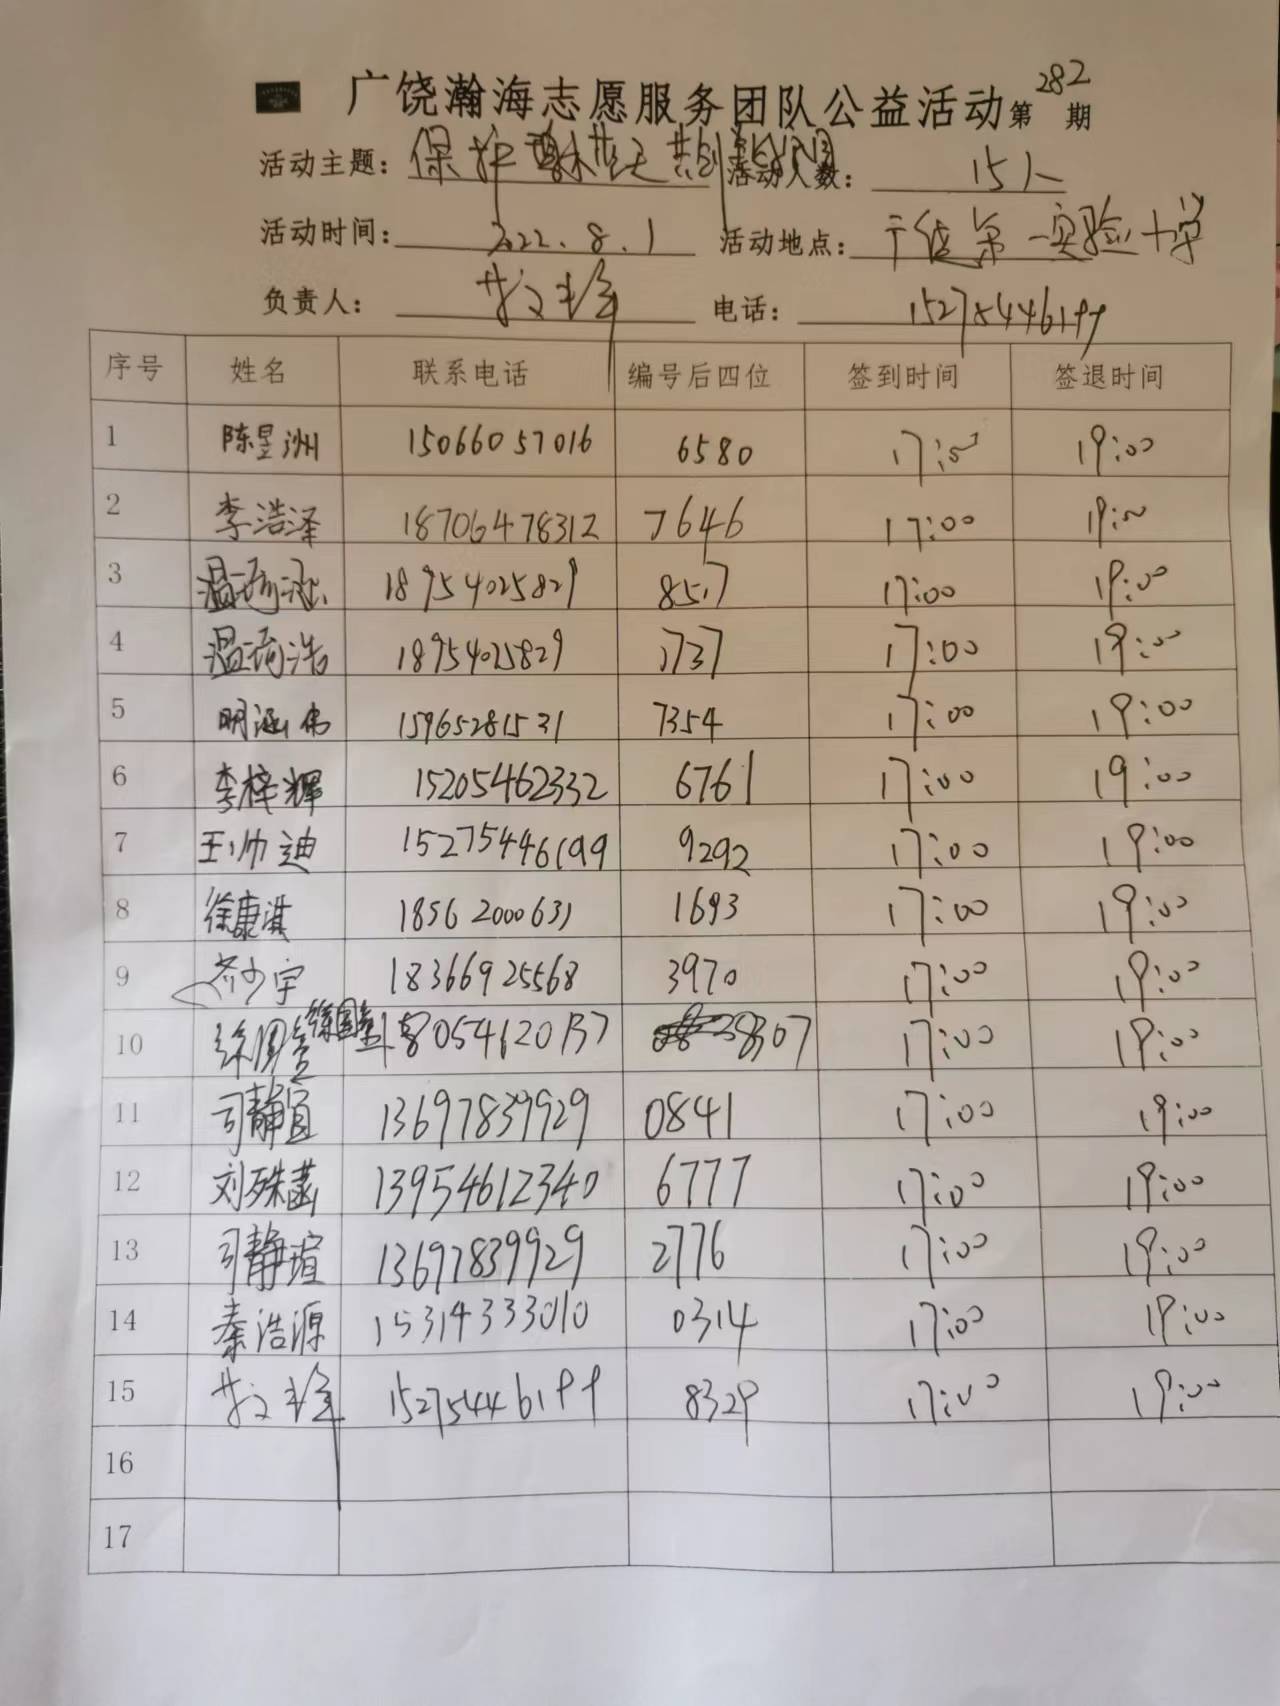 广饶瀚海志愿服务团队公益活动第282期
活动主题：保护 共创 活动人数：15人
活动时间：2022.8.1 活动地点：广饶第一实验小学
负责人： 电话：15275446199
序号 姓名 联系电话 编号后四位 签到时间 签退时间
1 陈昱洲 15066057016 6580 17:00 19:00
2 李浩泽 18706478312 7646 17:00 19:00
3 温 涵 18954025829 8517 17:00 19:00
4 温 浩 18954025829 1737 17:00 19:00
5 明涵伟 15965281531 7354 17:00 19:00
6 李梓辉 15205462332 6761 17:00 19:00
7 王帅迪 15275446199 9292 17:00 19:00
8 徐康淇 18562000631 1693 17:00 19:00
9 齐少宇 18366925568 3970 17:00 19:00
10 徐国 18054620137 8307 17:00 19:00
11 司静宜 13697839929 0841 17:00 19:00
12 刘殊菡 13954612340 6777 17:00 19:00
13 司静瑄 13697839929 2776 17:00 19:00
14 秦浩源 15314333010 0314 17:00 19:00
15 15275446199 8329 17:00 19:00
16
17